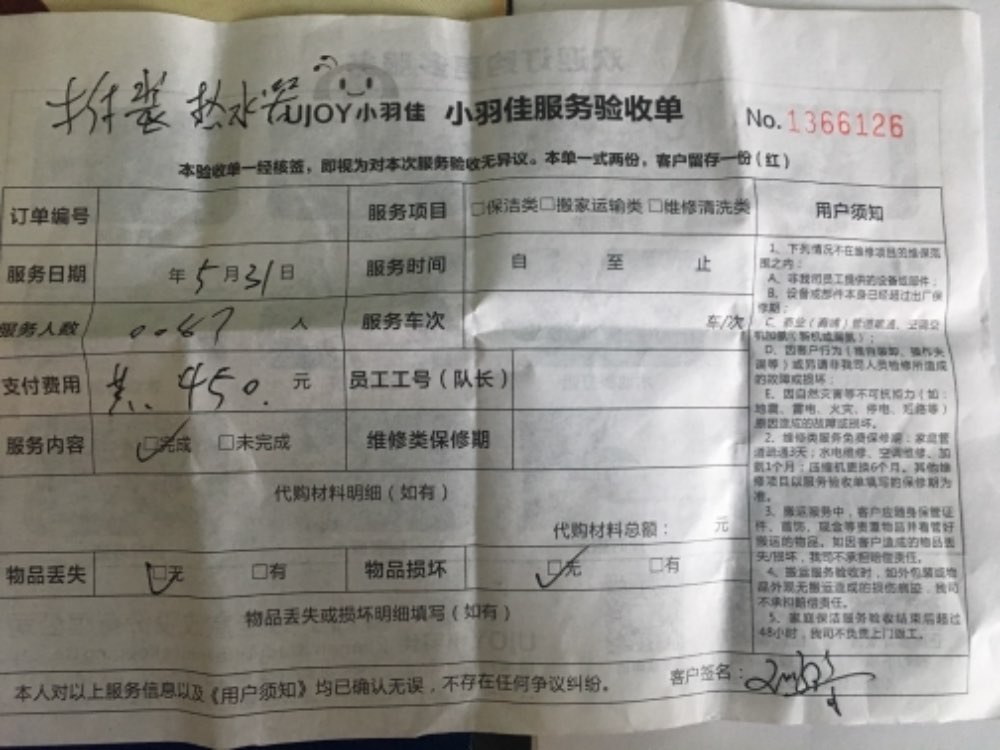 拆装热水器
UJOY小羽佳 小羽佳服务验收单 No.1366126
本验收单一经核签，即视为对本次服务验收无异议。本单一式两份，客户留存一份(红)
订单编号 服务项目 □保洁类□搬家运输类 □维修清洗类 用户须知
服务日期 年5月31日 服务时间 自 至 止
服务人数 0047 人 服务车次 车/次
支付费用 共 450. 元 员工工号（队长）
服务内容 □完成 □未完成 维修类保修期
代购材料明细（如有）
代购材料总额： 元
物品丢失 □无 □有 物品损坏 □无 □有
物品丢失或损坏明细填写（如有）
本人对以上服务信息以及《用户须知》均已确认无误，不存在任何争议纠纷。 客户签名：
1、下列情况不在维修项目的维保范
围之内：
A、非我司员工提供的设备或部件；
B、设备或部件本身已经超过出厂保
修期；
C、商业（商铺）管道疏通、空调空
D、因客户行为（擅自装卸、操作失
误等）或另请非我司人员检修所造成
的故障或损坏；
E、因自然灾害等不可抗拒力（如：
地震、雷电、火灾、停电、短路等）
原因造成的故障或损坏。
2、维修类服务免费保修期：家庭管
道疏通3天；水电维修、空调维修、加
氨1个月；压缩机更换6个月。其他维
修项目以服务验收单填写的保修期为
准。
3、搬运服务中，客户应随身保管证
件、首饰、现金等贵重物品并看管好
搬运的物品。如因客户造成的物品丢
失/损坏，我司不承担赔偿责任。
4、搬运服务验收时，如外包装或物
品外观无搬运造成的损伤痕迹，我司
不承担赔偿责任。
5、家庭保洁服务验收结束后超过
48小时，我司不负责上门返工。